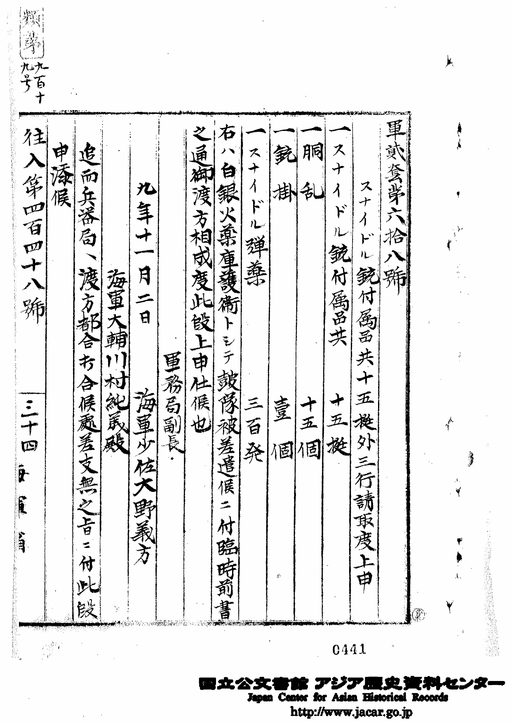 軍貳套第六拾八號
スナイドル銃付属品共十五挺外三行請取度上申
一スナイドル銃付属品共 十五挺
一胴乱 十五個
一銃掛 壹個
一スナイドル弾薬 三百発
右ハ白銀火薬庫護衛トシテ鼓隊被差遣候ニ付臨時前書
之通御渡方相成度此段上申仕候也
軍務局副長
九年十一月二日 海軍少佐大野義方
海軍大輔川村純義殿
追而兵器局、渡方都合打合候處差支無之旨ニ付此段
申添候
往入第四百四十八號 三十四 海軍省
九百十
九号
0441
国立公文書館 アジア歴史資料センター
Japan Center for Asian Historical Records
http://www.jacar.go.jp